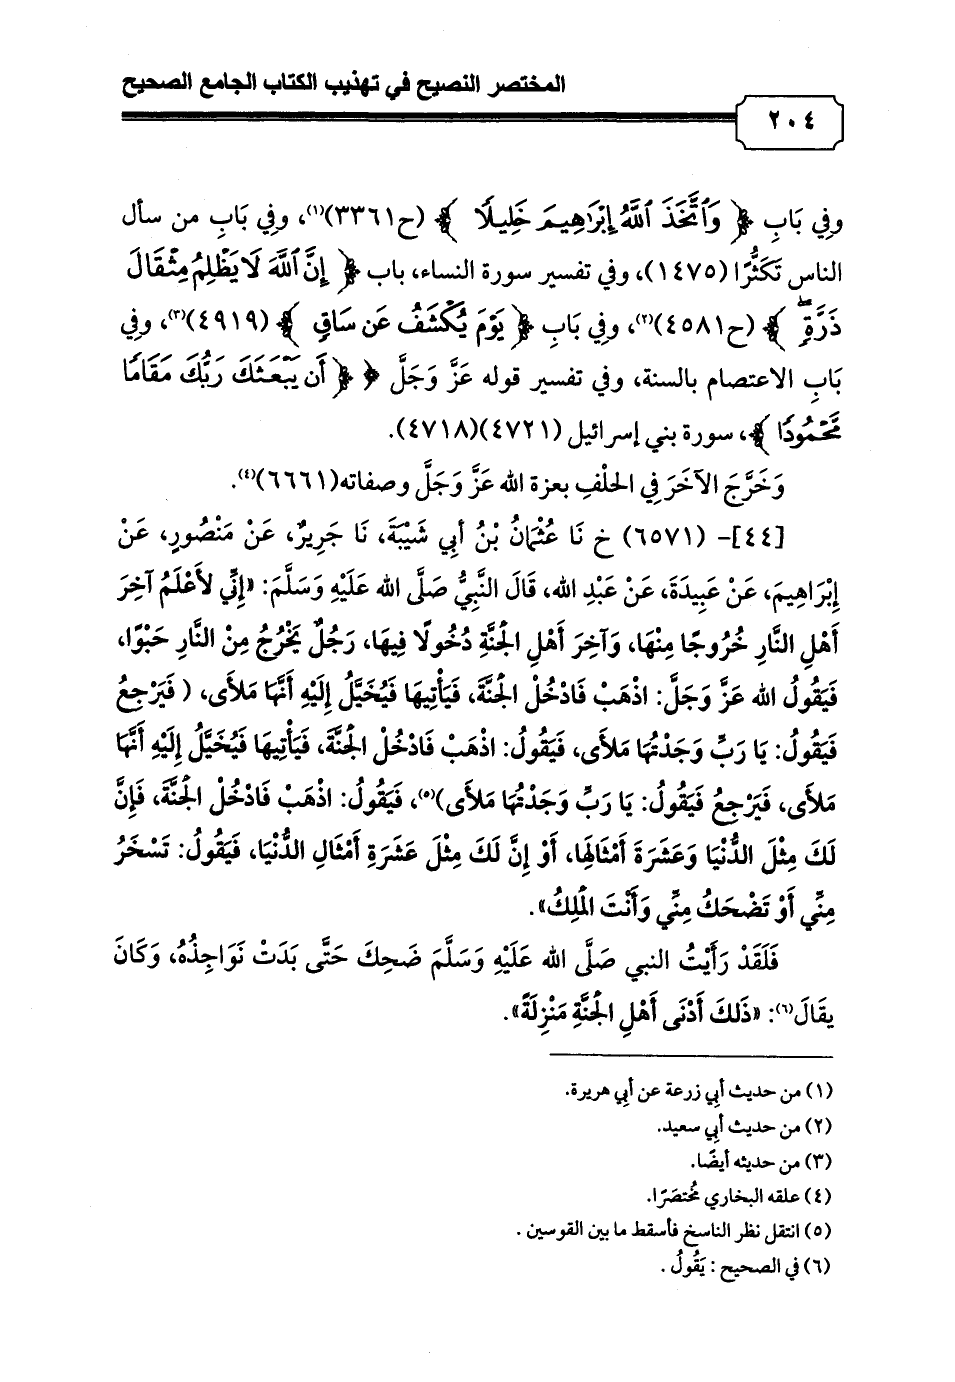 المختصر النصيح في تهذيب الكتاب الجامع الصحيح
٢٠٤
وفِي بَابِ ﴿ وَٱتَّخَذَ ٱللَّهُ إِبْرَٰهِيمَ خَلِيلًا ﴾ (ح٣٣٦١)(١)، وفِي بَابِ من سأل
الناس تَكَثُّرًا (١٤٧٥)، وفي تفسير سورة النساء، باب ﴿ إِنَّ ٱللَّهَ لَا يَظْلِمُ مِثْقَالَ
ذَرَّةٍۖ ﴾ (ح٤٥٨١)(٢)، وفي بَابِ ﴿ يَوْمَ يُكْشَفُ عَن سَاقٍ ﴾ (٤٩١٩)(٣)، وفِي
بَابِ الاعتصام بالسنة، وفي تفسير قوله عَزَّ وَجَلَّ ﴿ ﴿ أَن يَبْعَثَكَ رَبُّكَ مَقَامًا
مَّحْمُودًا ﴾، سورة بني إسرائيل (٤٧٢١)(٤٧١٨).
وَخَرَّجَ الآخَرَ فِي الحَلْفِ بعزة الله عَزَّ وَجَلَّ وصفاته(٦٦٦١)(٤).
[٤٤]- (٦٥٧١) خ نَا عُثْمَانُ بْنُ أبِي شَيْبَةَ، نَا جَرِيرٌ، عَنْ مَنْصُورٍ، عَنْ
إِبْرَاهِيمَ، عَنْ عَبِيدَةَ، عَنْ عَبْدِ الله، قَالَ النَّبِيُّ صَلَّى الله عَلَيْهِ وَسَلَّمَ: «إِنِّي لأَعْلَمُ آخِرَ
أَهْلِ النَّارِ خُرُوجًا مِنْهَا، وَآخِرَ أَهْلِ الجَنَّةِ دُخُولًا فِيهَا، رَجُلٌ يَخْرُجُ مِنْ النَّارِ حَبْوًا،
فَيَقُولُ الله عَزَّ وَجَلَّ: اذْهَبْ فَادْخُلْ الجَنَّةَ، فَيَأْتِيهَا فَيُخَيَّلُ إِلَيْهِ أَنَّهَا مَلأَى، ( فَيَرْجِعُ
فَيَقُولُ: يَا رَبِّ وَجَدْتُهَا مَلأَى، فَيَقُولُ: اذْهَبْ فَادْخُلْ الجَنَّةَ، فَيَأْتِيهَا فَيُخَيَّلُ إِلَيْهِ أَنَّهَا
مَلأَى، فَيَرْجِعُ فَيَقُولُ: يَا رَبِّ وَجَدْتُهَا مَلأَى)(٥)، فَيَقُولُ: اذْهَبْ فَادْخُلْ الجَنَّةَ، فَإِنَّ
لَكَ مِثْلَ الدُّنْيَا وَعَشَرَةَ أَمْثَالِهَا، أَوْ إِنَّ لَكَ مِثْلَ عَشَرَةِ أَمْثَالِ الدُّنْيَا، فَيَقُولُ: تَسْخَرُ
مِنِّي أَوْ تَضْحَكُ مِنِّي وَأَنْتَ المَلِكُ».
فَلَقَدْ رَأَيْتُ النبي صَلَّى الله عَلَيْهِ وَسَلَّمَ ضَحِكَ حَتَّى بَدَتْ نَوَاجِذُهُ، وَكَانَ
يقَالَ(٦): «ذَلكَ أَدْنَى أَهْلِ الجَنَّةِ مَنْزِلَةً».
(١) من حديث أبي زرعة عن أبي هريرة.
(٢) من حديث أبي سعيد.
(٣) من حديثه أيضًا.
(٤) علقه البخاري مُختصَرًا.
(٥) انتقل نظر الناسخ فأسقط ما بين القوسين .
(٦) في الصحيح : يَقُولُ .